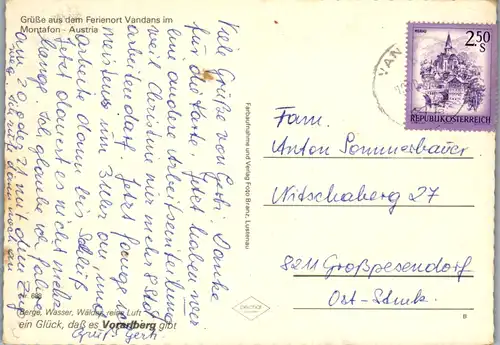 Grüße aus dem Ferienort Vandans im
Montafon - Austria
Viele Grüße von Gerti. Danke
für die Karte. Jetzt haben wir
eine andere Arbeitseinteilung
weil Christine nur mehr 8 Std
arbeiten darf. Jetzt
meistens um 3 Uhr an und
arbeite dann bis
jetzt dauert es nicht mehr
lange. Ich glaube ich fahre
am 20. oder 21. mit dem Zug
weg
Gruß Gerti.
698
Berge, Wasser, Wälder, reine Luft
ein Glück, daß es Vorarlberg gibt
Farbaufnahme und Verlag Foto Branz, Lustenau
VAN
2.50
S
REPUBLIK ÖSTERREICH
Fam.
Anton Sommerbauer
Nitschaberg 27
8211 Großpesendorf
Ost-Stmk.
B